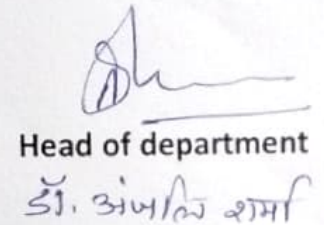 Head of department
डॉ. अंजलि शर्मा